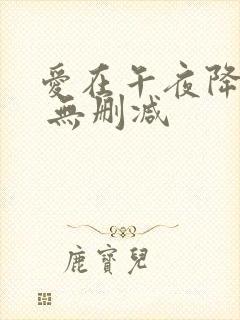 愛在午夜降
無刪減
鹿寶兒